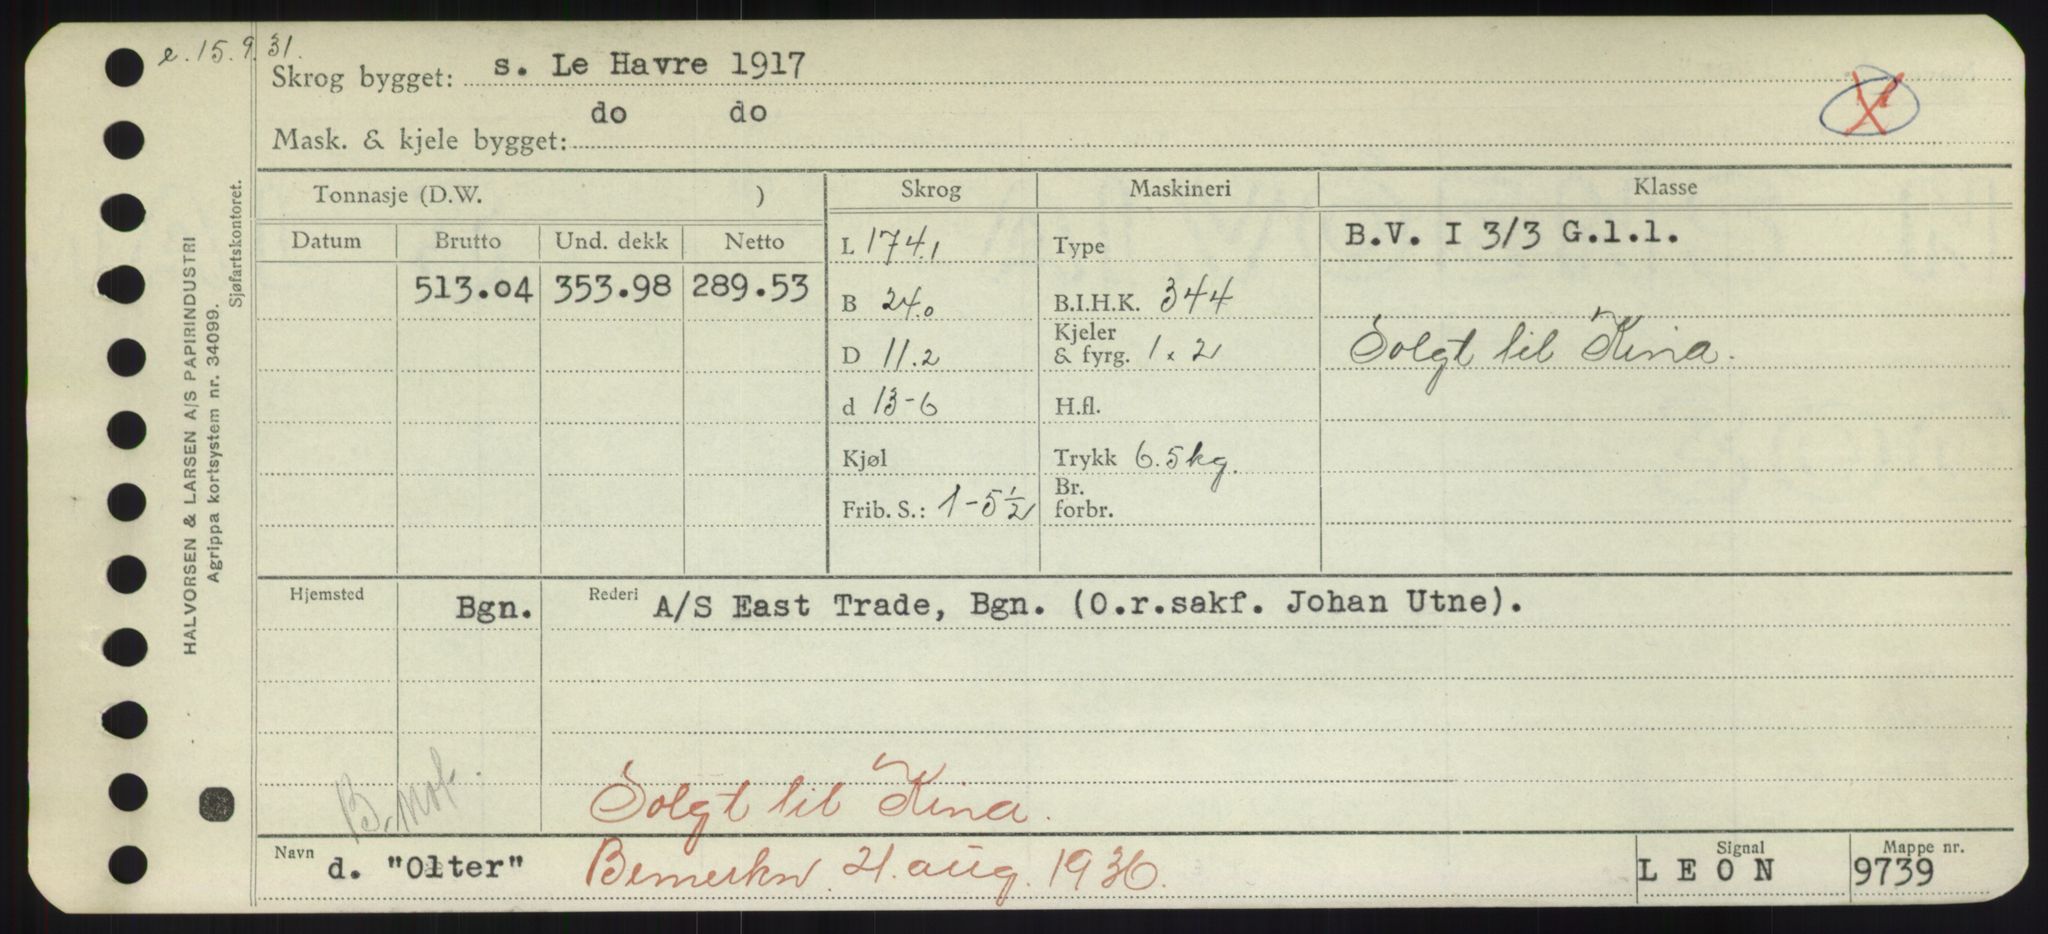 e. 15.9.31.
Skrog bygget: s. Le Havre 1917
do do
Mask. & kjele bygget:
Tonnasje (D.W. )
Skrog
Maskineri
Klasse
Datum
Brutto
Und. dekk
Netto
513.04 353.98 289.53
L 174.1
B 24.0
D 11.2
d 13-6
Kjøl
Frib. S.: 1-5½
Type
B.I.H.K. 344
Kjeler
& fyrg. 1 x 2
H.fl.
Trykk 6.5 kg.
Br.
forbr.
B.V. I 3/3 G.l.l.
Solgt til Kina.
Hjemsted Bgn. Rederi A/S East Trade, Bgn. (O.r.sakf. Johan Utne).
Solgt til Kina.
Navn d. "Olter" Bemerkn. 21. aug. 1936.
Signal
LEON
Mappe nr.
9739
HALVORSEN & LARSEN A/S PAPIRINDUSTRI
Agrippa kortsystem nr. 34099.
Sjøfartskontoret.